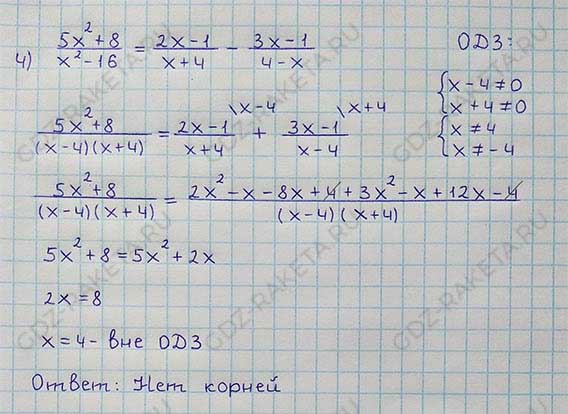 4) (5x²+8)/(x²-16) = (2x-1)/(x+4) - (3x-1)/(4-x)
ОДЗ:
{x-4≠0
{x+4≠0
{x≠4
{x≠-4
(5x²+8)/((x-4)(x+4)) = (2x-1)/(x+4) \x-4 + (3x-1)/(x-4) \x+4
(5x²+8)/((x-4)(x+4)) = (2x²-x-8x+4+3x²-x+12x-4)/((x-4)(x+4))
5x²+8=5x²+2x
2x=8
x=4- вне ОДЗ
Ответ: Нет корней
GDZ-RAKETA.RU